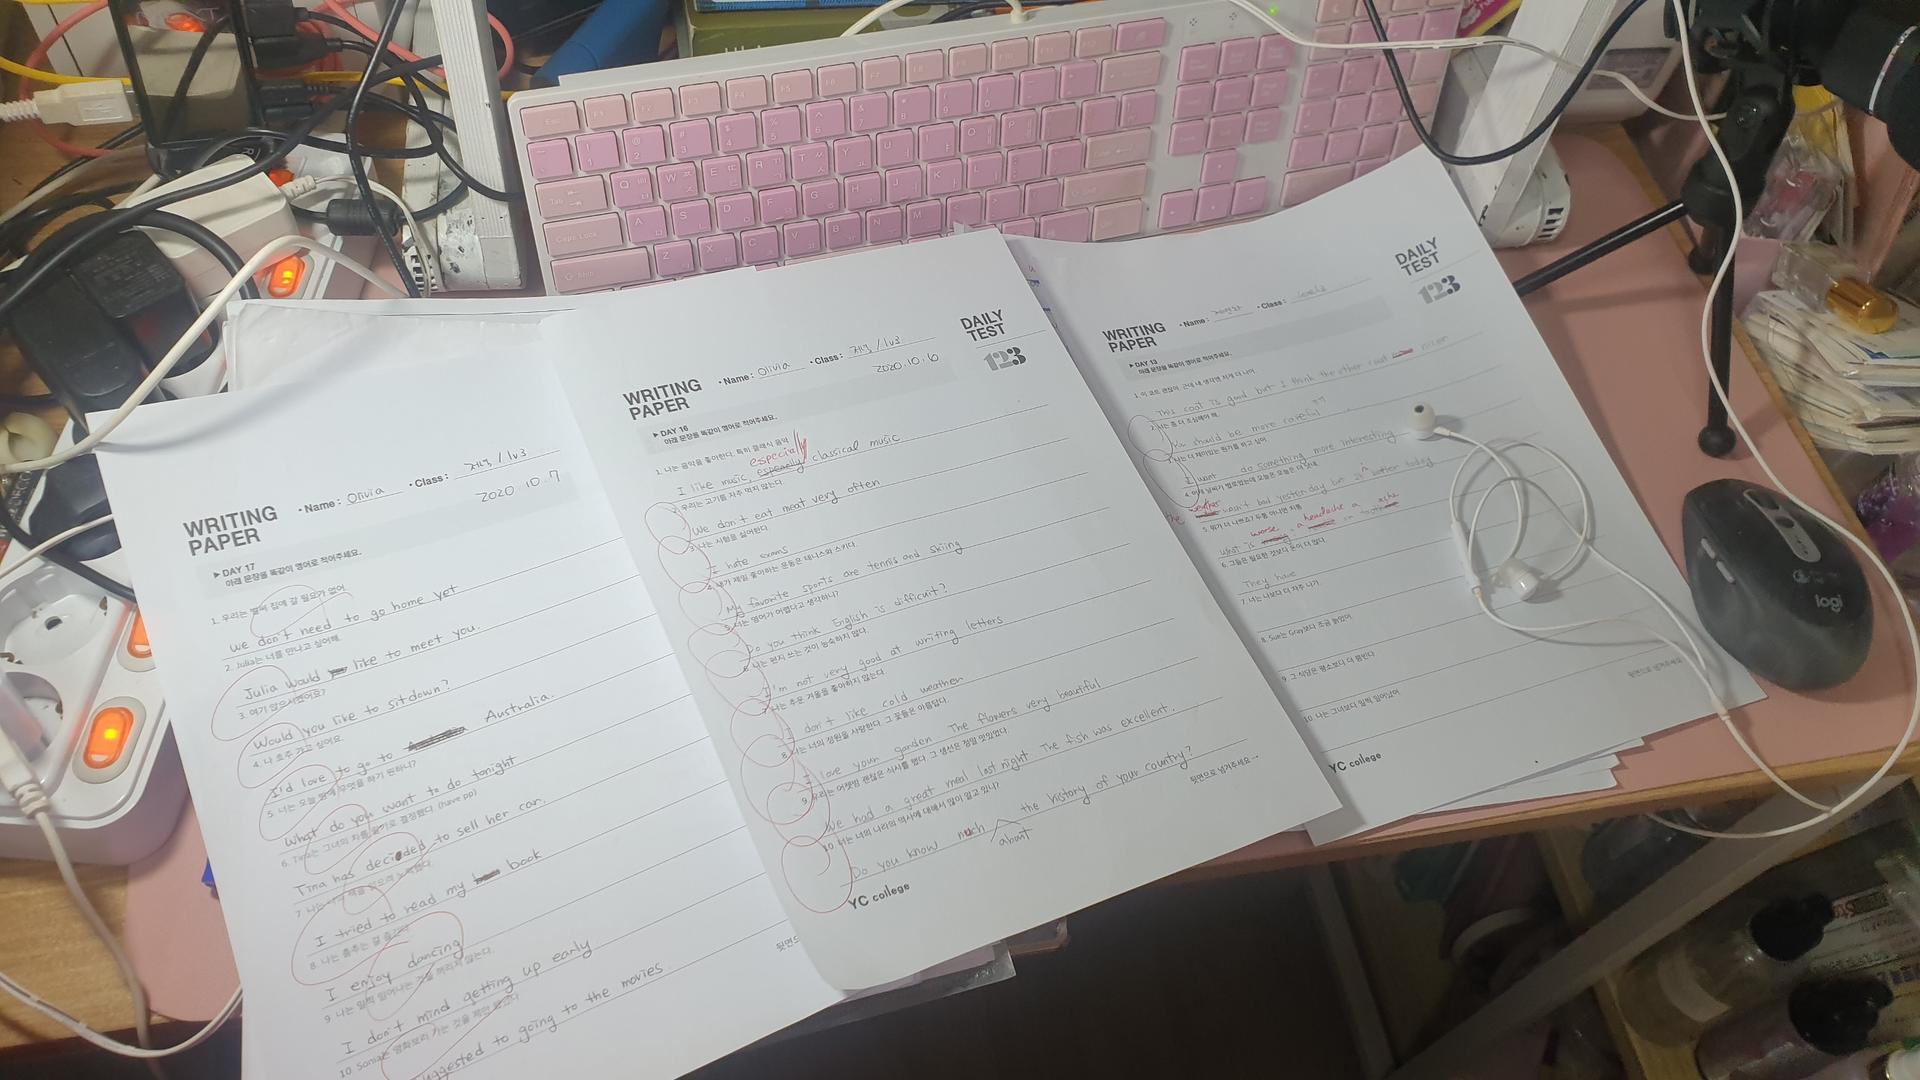 WRITING
PAPER
• Name : Olivia • Class : 저녁 / lv3
2020 10. 7
▶ DAY 17
아래 문장을 똑같이 영어로 적어주세요.
1. 우리는 벌써 집에 갈 필요가 없어
We don't need to go home yet
2. Julia는 너를 만나고 싶어해.
Julia would like to meet you.
3. 여기 앉으시겠어요?
Would you like to sit down?
4. 나 호주 가고 싶어요.
I'd love to go to Australia.
5. 너는 오늘 밤에 무엇을 하기 원하니?
What do you want to do tonight
6. Tina는 그녀의 차를 팔기로 결정했다 (have pp)
Tina has decided to sell her car.
I tried to read my book
8. 나는 춤추는 걸 즐긴다
I enjoy dancing
9. 나는 일찍 일어나는 것을 꺼리지 않는다.
I don't mind getting up early
10 Sonia는 영화보러 가는 것을 제안했다
suggested to going to the movies
뒷면으
WRITING
PAPER
• Name : Olivia • Class : 저녁 / lv3
2020. 10. 6
DAILY
TEST
123
▶ DAY 16
아래 문장을 똑같이 영어로 적어주세요.
1. 나는 음악을 좋아한다. 특히 클래식 음악
especially
I like music, classical music
2. 우리는 고기를 자주 먹지 않는다.
We don't eat meat very often
3. 나는 시험을 싫어한다.
I hate exams
4. 내가 제일 좋아하는 운동은 테니스와 스키다.
My favorite sports are tennis and skiing
5. 너는 영어가 어렵다고 생각하니?
Do you think English is difficult?
6. 나는 편지 쓰는 것이 능숙하지 않다.
I'm not very good at writing letters
7. 나는 추운 겨울을 좋아하지 않는다.
I don't like cold weather
8. 나는 너의 정원을 사랑한다. 그 꽃들은 아름답다.
I love your garden The flowers very beautiful
9. 우리는 어젯밤 괜찮은 식사를 했다. 그 생선은 정말 맛있었다.
We had a great meal last night The fish was excellent.
10. 너는 너의 나라의 역사에 대해서 많이 알고 있니?
Do you know much about the history of your country?
뒷면으로 넘겨주세요→
YC college
WRITING
PAPER
• Name : • Class :
DAILY
TEST
123
▶ DAY 13
아래 문장을 똑같이 영어로 적어주세요.
This coat is good but I think the other coat nicer
2. 너는 좀 더 조심해야 해.
You should be more careful
I want do something more interesting
The weather wasn't bad yesterday but it's better today
5. 뭐가 더 나쁜죠? 두통 아니면 치통
What is worse, a headache a
6. 그들은 필요한 것보다 돈이 더 많다.
They have
7. 너는 나보다 더 자주 나가.
8. Sue는 Gray보다 조금 늙었어.
9. 그 식당은 평소보다 더 붐빈다.
10. 나는 그녀보다 일찍 일어났어
뒷면으로 넘겨주세요
YC college
logi